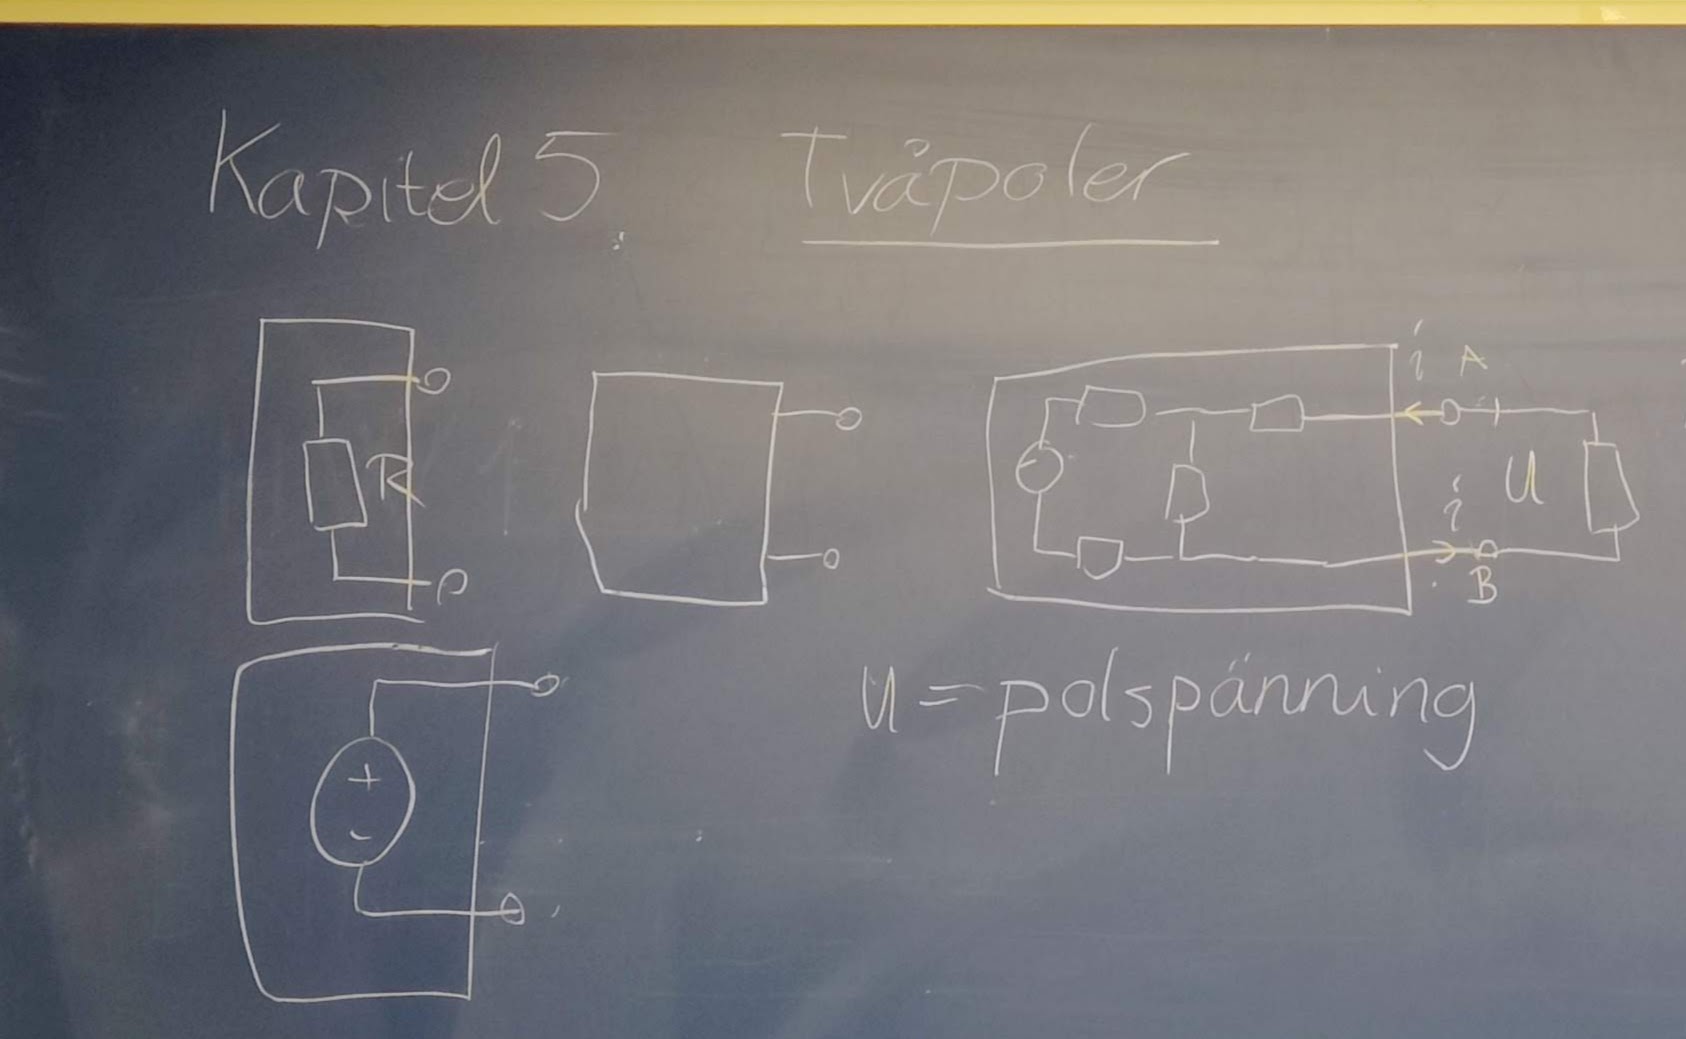 Kapitel 5 Tvåpoler
R
+
-
i A
U
i
B
U = polspänning